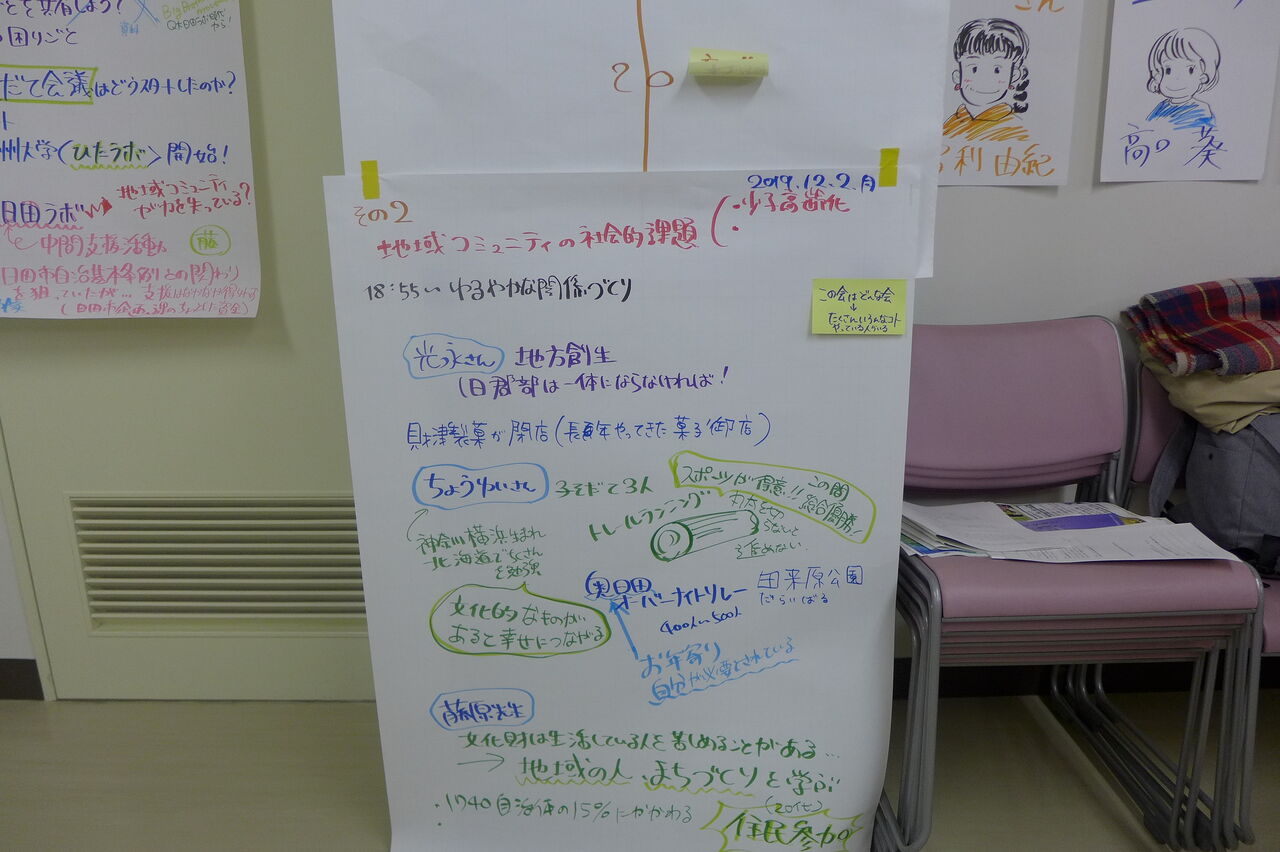 ごとを共有しよう!
困りごと
だて会議はどうスタートしたのか?
州大学(ひたラボ)開始!
日田ラボ
地域コミュニティ
が力を失っている?
中間支援活動
藤
日田市自治基本条例との関わり
を狙っていたが…
2019.12.2.月
その2
地域コミュニティの社会的課題
・少子高齢化
18:55〜ゆるやかな関係づくり
この会はどんな会
↓
たくさんいろんなコト
やっている人がいる
光永さん 地方創生
(旧郡部は一体にならなければ!
財津製菓が閉店(長年やってきた菓子御店)
ちょうかいさん 子そだて3人
スポーツが得意!!
この間
総合優勝!
トレールランニング
丸太を切
らないと
進めない
神奈川横浜生まれ
北海道でたくさん
を勉強
奥日田
オーバーナイトリレー
400人〜500人
田来原公園
だらいばる
文化的なものが
あると幸せにつながる
お年寄り
自分が必要とされている
藤原先生
文化財は生活している人を苦しめることがある…
→ 地域の人、まちづくりを学ぶ
・1740自治体の15%にかかわる
(20代)
住民参加
利由紀
高口 葵